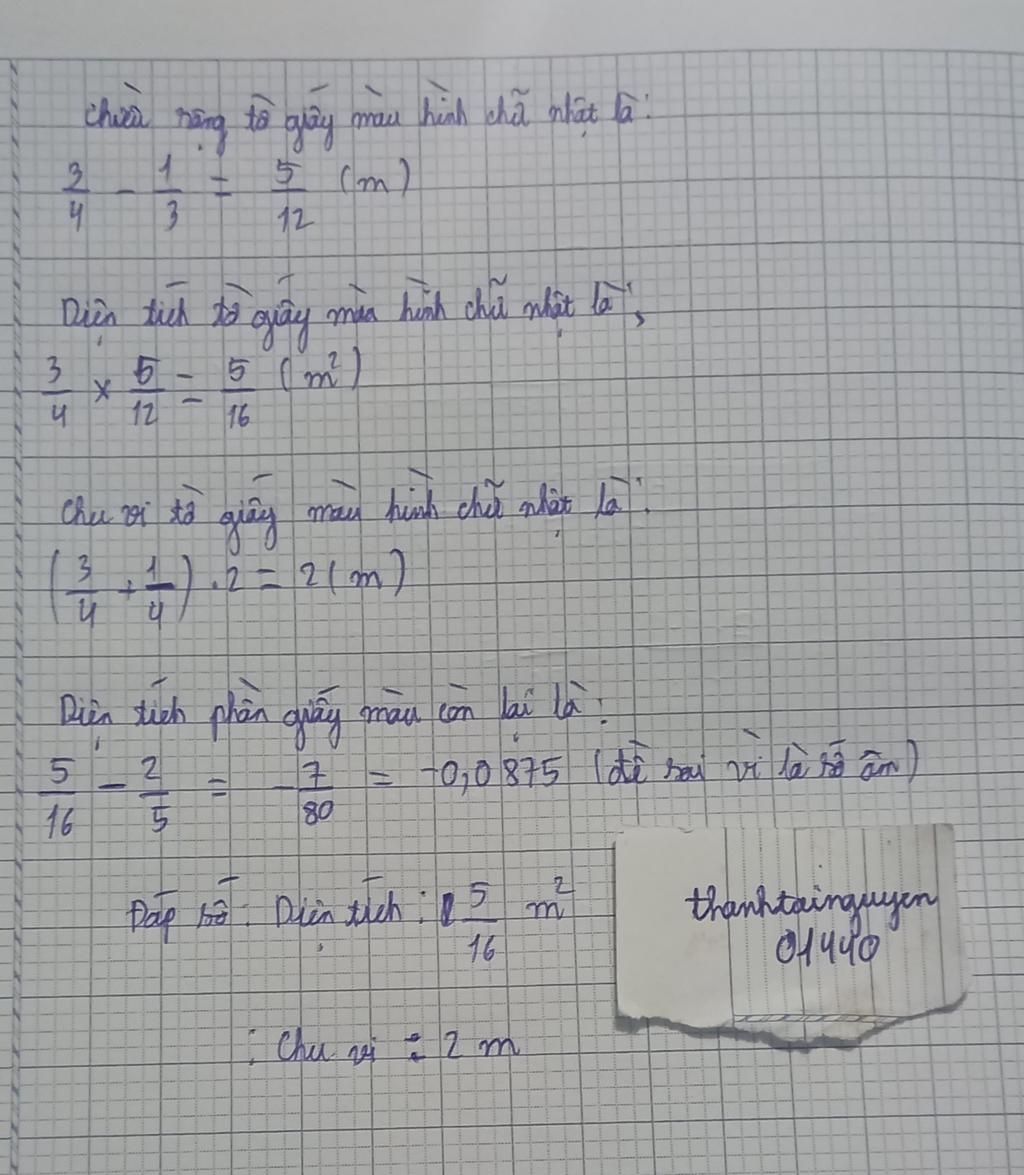 Chiều rộng tờ giấy màu hình chữ nhật là:
3/4 - 1/3 = 5/12 (m)
Diện tích tờ giấy màu hình chữ nhật là:
3/4 × 5/12 = 5/16 (m²)
Chu vi tờ giấy màu hình chữ nhật là:
(3/4 + 1/4) . 2 = 2 (m)
Diện tích phần giấy màu còn lại là:
5/16 - 2/5 = -7/80 = -0,0875 (đề sai vì là số âm)
Đáp số: Diện tích: 5/16 m²
thanhtainguyen
01440
: Chu vi = 2 m